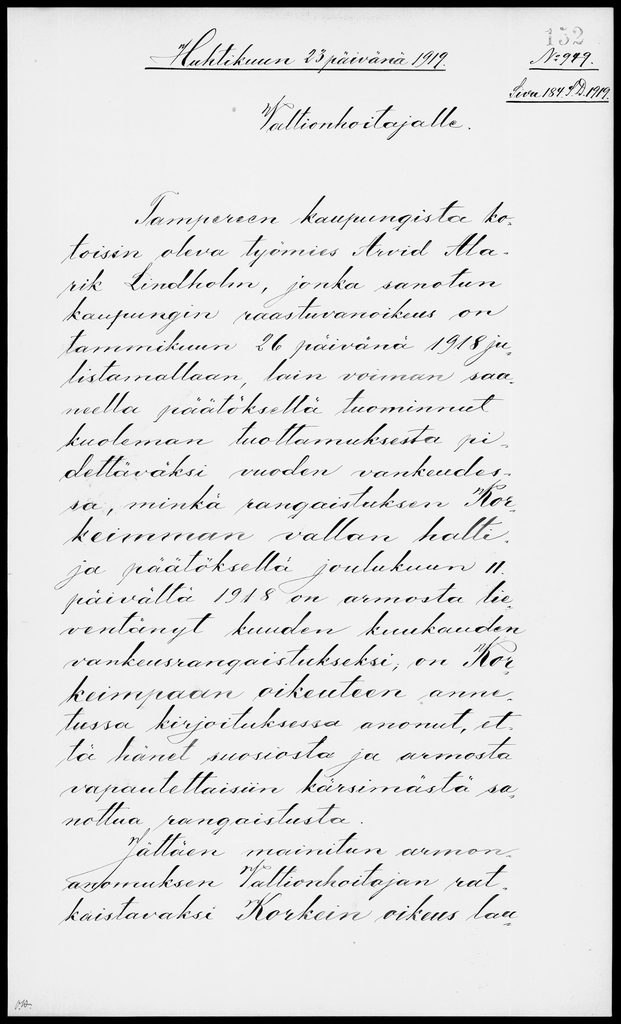 152
Huhtikuun 23 päivänä 1919.
No 949.
Sivu 184 S.D. 1919.
Valtionhoitajalle.
Tampereen kaupungista ko-
toisin oleva työmies Arvid Ala-
rik Lindholm, jonka sanotun
kaupungin raastuvanoikeus on
tammikuun 26 päivänä 1918 ju-
listamallaan, lain voiman saa-
neella päätöksellä tuominnut
kuoleman tuottamuksesta pi-
dettäväksi vuoden vankeudes-
sa, minkä rangaistuksen Kor-
keimman vallan halti-
ja päätöksellä joulukuun 11.
päivältä 1918 on armosta lie-
ventänyt kuuden kuukauden
vankeusrangaistukseksi, on Kor-
keimpaan oikeuteen anne-
tussa kirjoituksessa anonut, et-
tä hänet suosiosta ja armosta
vapautettaisiin kärsimästä sa-
nottua rangaistusta.
Jättäen mainitun armon-
anomuksen Valtionhoitajan rat-
kaistavaksi Korkein oikeus lau-